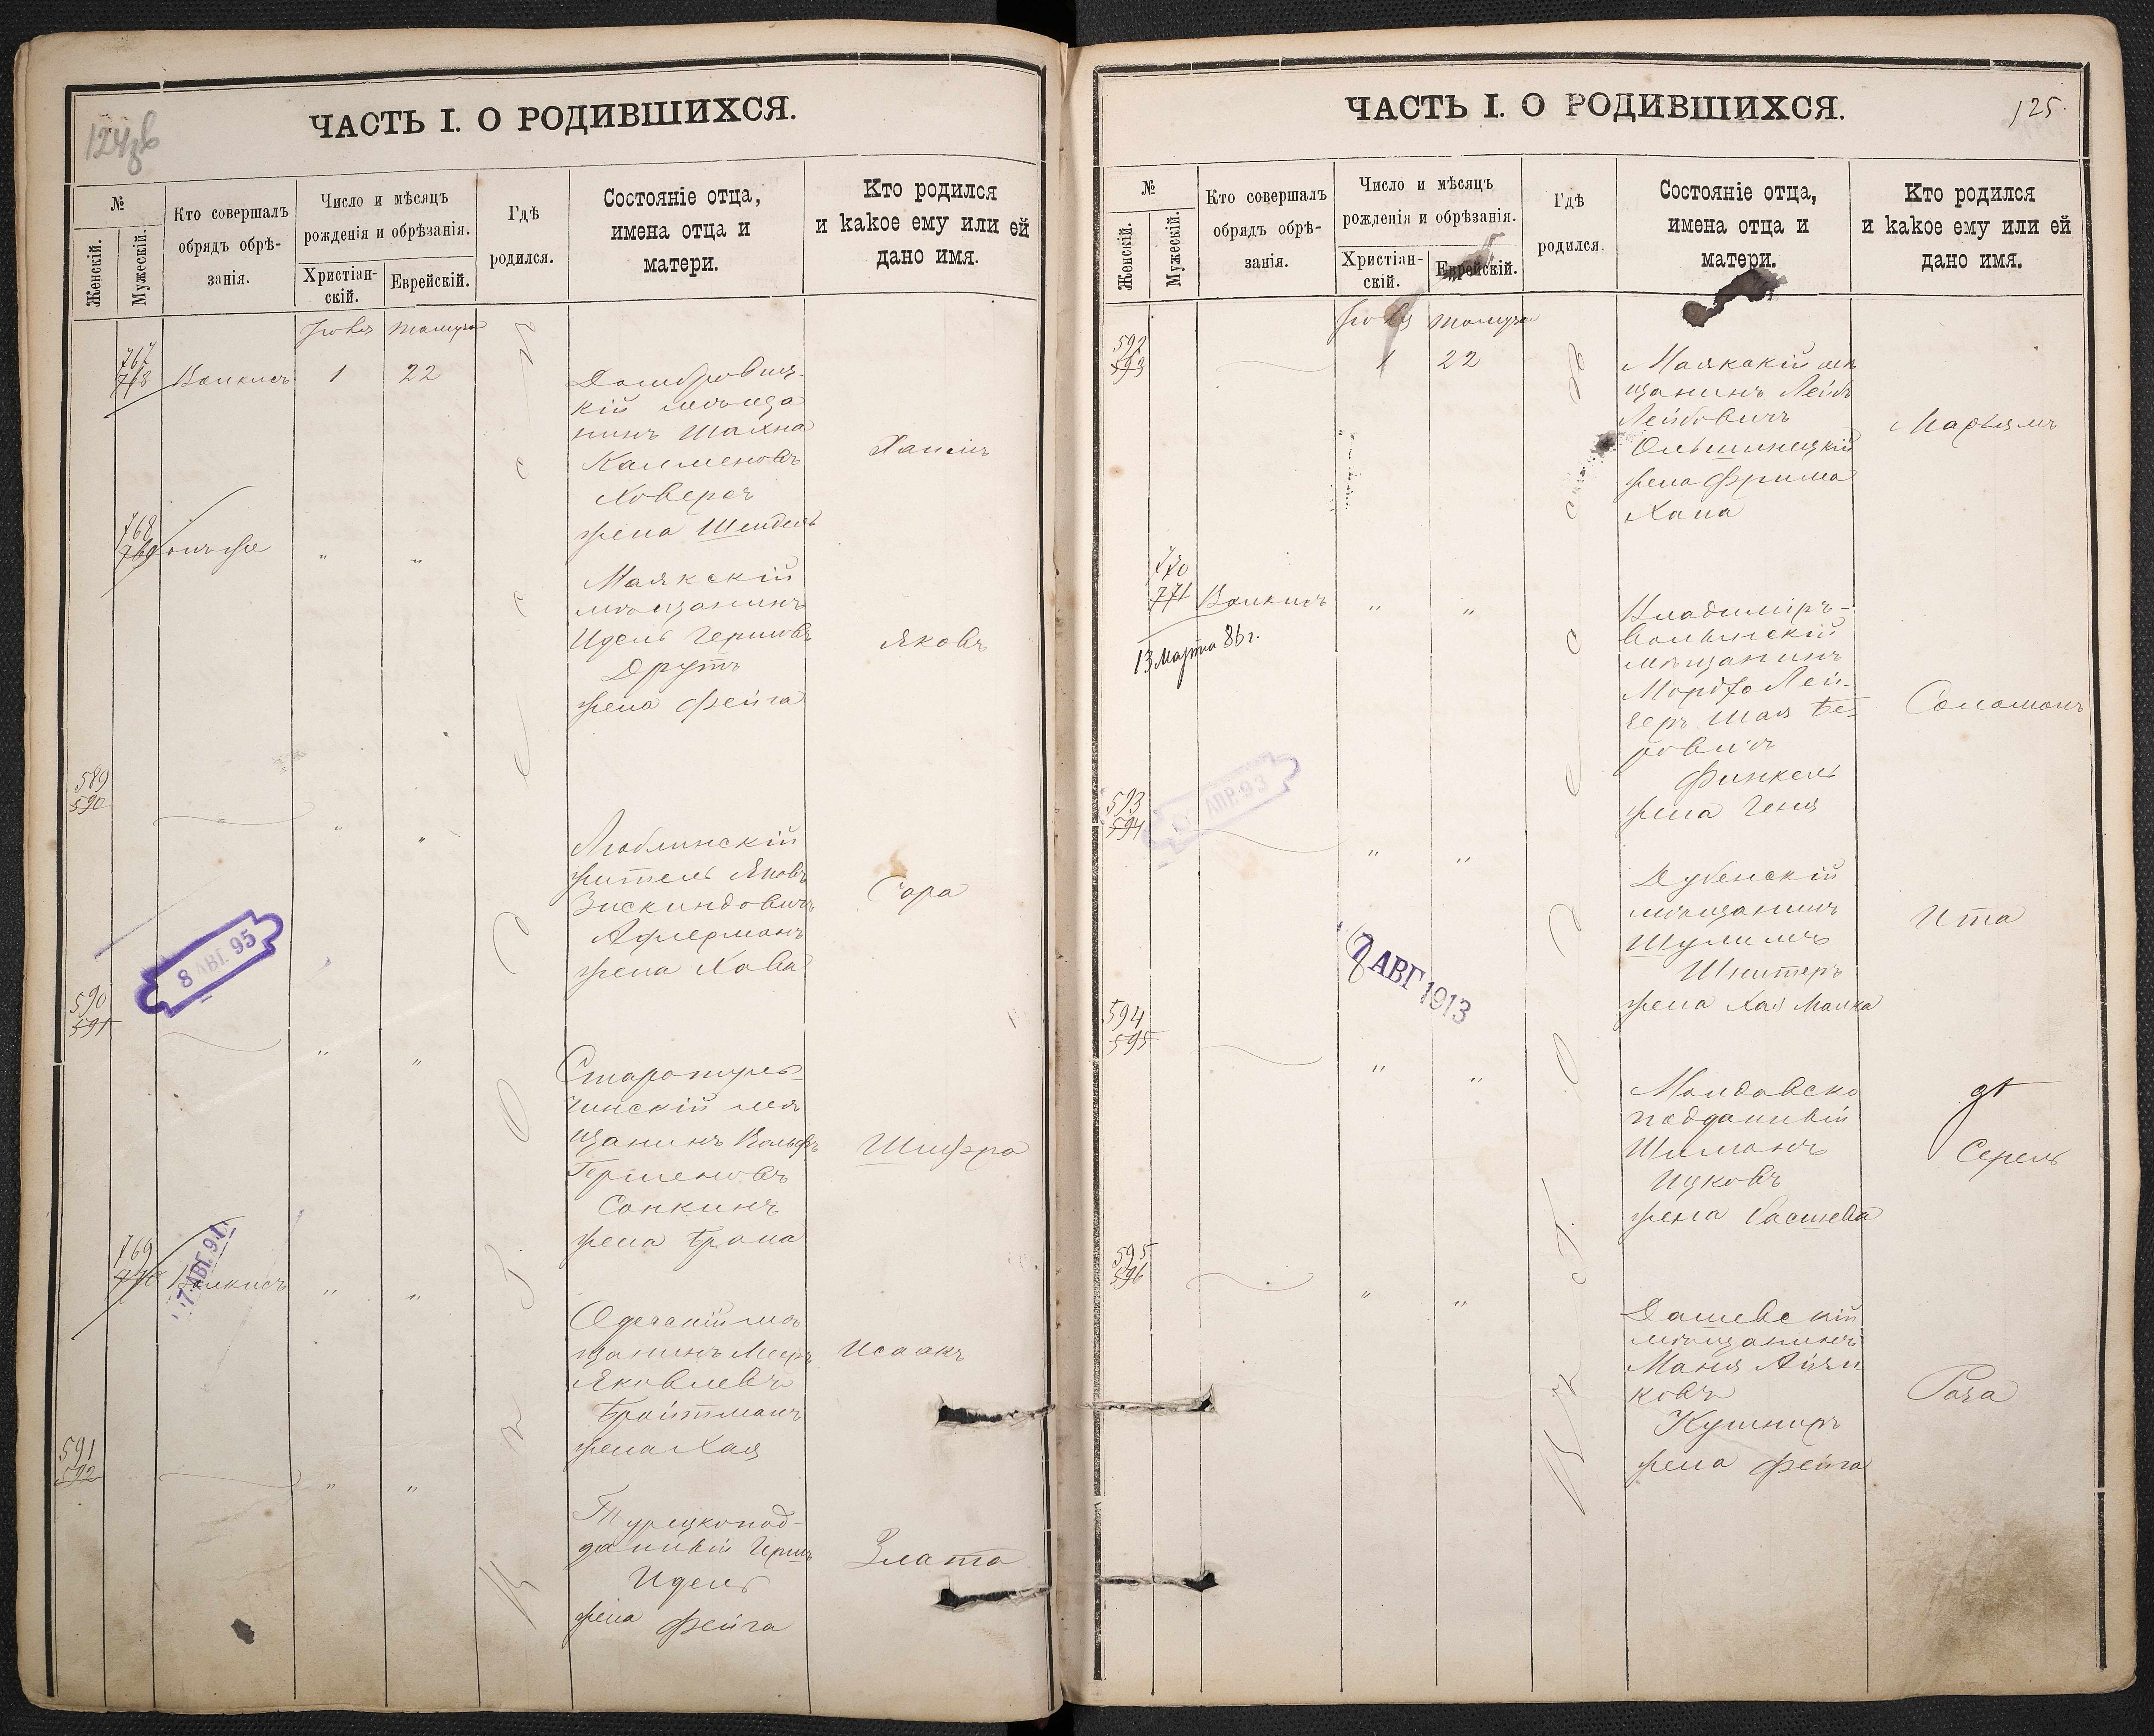 124 зв
ЧАСТЬ I. О РОДИВШИХСЯ.
№
Женскій.
Мужескій.
Кто совершалъ
обрядъ обрѣ-
занія.
Число и мѣсяцъ
рожденія и обрѣзанія.
Христіан-
скій.
Еврейскій.
Гдѣ
родился.
Состояніе отца,
имена отца и
матери.
Кто родился
и какое ему или ей
дано имя.
767
768
1
22
кій мѣща
нинъ Шахна
жена Шендель
Хаимъ
768
769
онъ же
" "
Маякскій
мѣщанинъ
Идель Гершовъ
Друтъ
жена Фейга
Яковъ
589
590
" "
Люблинскій
житель Яковъ
Зискиндовичъ
жена Хава
Сара
8 АВГ. 95
590
591
" "
чинскій мѣ
щанинъ Вольфъ
Гершеновъ
Сопкинъ
жена Брана
Шифра
769
770
7 АВГ. 91
" "
Одесскій мѣ
щанинъ Мееръ
Яковлевъ
Бройтманъ
жена Хая
Исаакъ
591
592
" "
Турецкопод-
данный Гершъ
Идель
жена Фейга
Злата
125.
ЧАСТЬ I. О РОДИВШИХСЯ.
№
Женскій.
Мужескій.
Кто совершалъ
обрядъ обрѣ-
занія.
Число и мѣсяцъ
рожденія и обрѣзанія.
Христіан-
скій.
Еврейскій.
Гдѣ
родился.
Состояніе отца,
имена отца и
матери.
Кто родился
и какое ему или ей
дано имя.
592
593
1
22
Маякскій мѣ
щанинъ Лейбъ
Лейбовичъ
жена Фрима
Хана
Марьямъ
770
771
" "
13 Марта 86 г.
Владиміръ-
Волынскій
мѣщанинъ
Мордко Лей-
зеръ Шая Бе-
ровичъ
Финкель
жена Геня
Соломонъ
АПР. 93
593
594
" "
Дубенскій
мѣщанинъ
Шулимъ
Шнитеръ
жена Хая Малка
Ита
АВГ 1913
594
595
" "
Молдавско
подданный
Шлиманъ
Ицковъ
жена Басшева
Серель
595
596
" "
Дашевскій
мѣщанинъ
Маня Айзи
ковъ
Кушниръ
жена Фейга
Роза